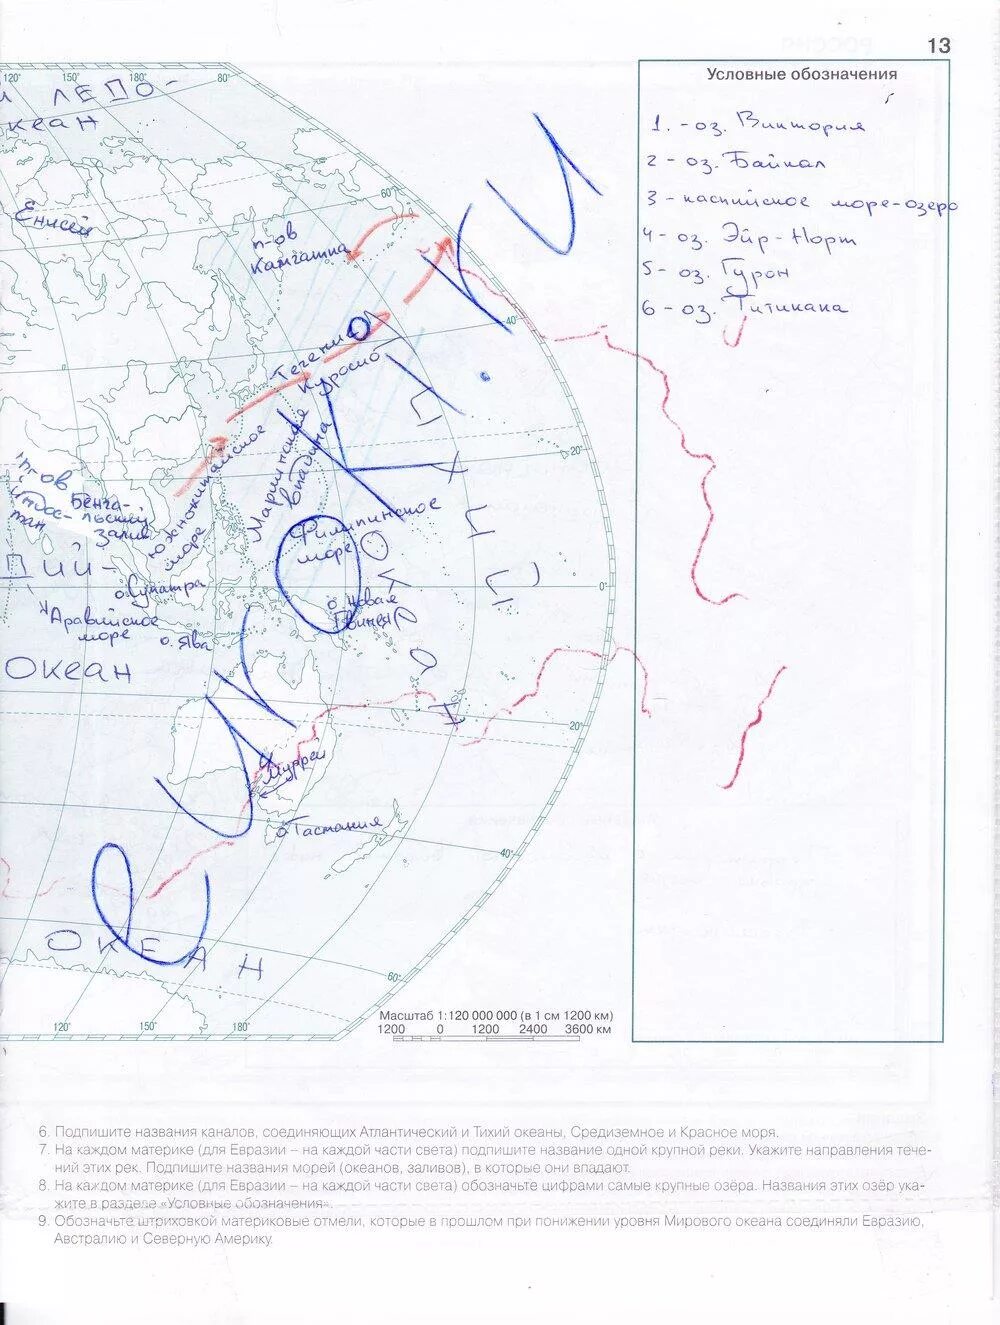 13
Условные обозначения
1. - оз. Виктория
2 - оз. Байкал
3 - каспийское море-озеро
4 - оз. Эйр-Норт
5 - оз. Гурон
6 - оз. Титикака
120° 150° 180° 80°
й ЛЕДО-
кеан
60°
Енисей
п-ов
Камчатка
40°
Течение
Куросио
20°
п-ов
Индос-
тан
Бенга-
льский
залив
Южнокитайское
море
Марианская
впадина
Филипинское
море
ДИЙ-
о. Суматра
0°
Аравийское
море
о. Ява
о. Новая
Гвинея
ОКеан
20°
4
Муррей
о Тасмания
40°
ОКЕАН
60°
120° 150° 180°
Масштаб 1:120 000 000 (в 1 см 1200 км)
1200 0 1200 2400 3600 км
6. Подпишите названия каналов, соединяющих Атлантический и Тихий океаны, Средиземное и Красное моря.
7. На каждом материке (для Евразии – на каждой части света) подпишите название одной крупной реки. Укажите направления тече-
ний этих рек. Подпишите названия морей (океанов, заливов), в которые они впадают.
8. На каждом материке (для Евразии – на каждой части света) обозначьте цифрами самые крупные озёра. Названия этих озёр ука-
жите в разделе «Условные обозначения».
9. Обозначьте штриховкой материковые отмели, которые в прошлом при понижении уровня Мирового океана соединяли Евразию,
Австралию и Северную Америку.